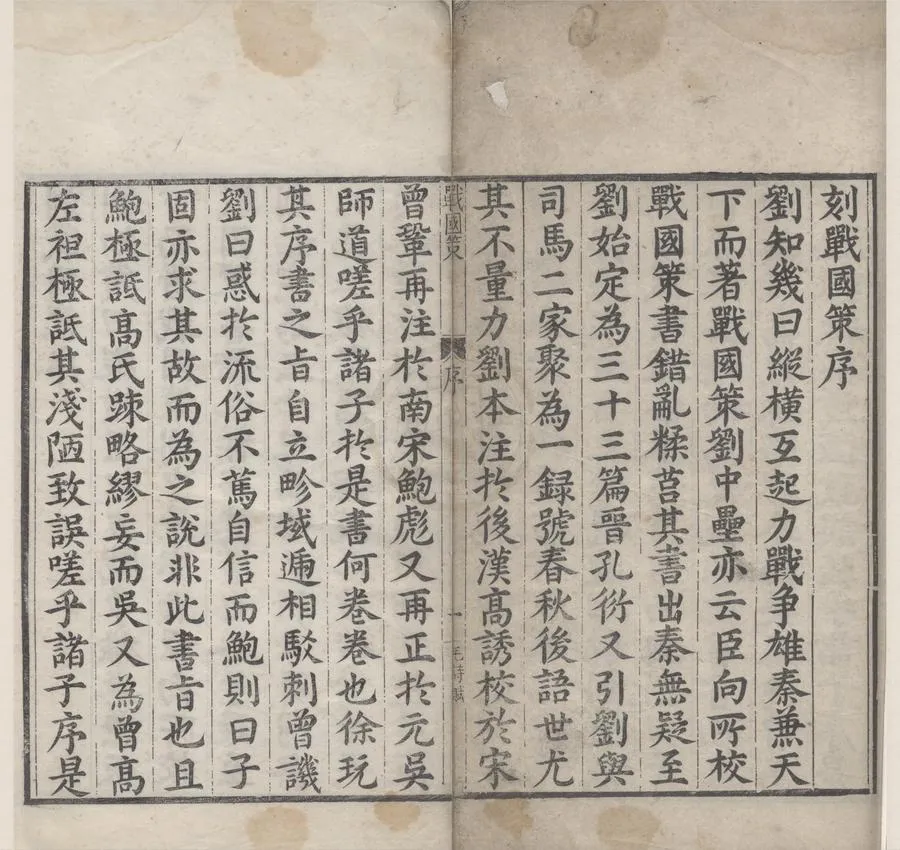 刻戰國策序
劉知幾曰縱橫互起力戰争雄秦兼天
下而著戰國策劉中壘亦云臣向所校
戰國策書錯亂糅莒其書出秦無疑至
劉始定為三十三篇晉孔衍又引劉與
司馬二家聚為一録號春秋後語世尤
其不量力劉本注扵後漢高誘校於宋
戰國策
序
一
曾鞏再注扵南宋鮑彪又再正扵元吳
師道嗟乎諸子扵是書何卷卷也徐玩
其序書之旨自立畛域遞相駁刺曾譏
劉曰惑扵流俗不篤自信而鮑則曰子
固亦求其故而為之說非此書旨也且
鮑極詆高氏踈略繆妄而吳又為曾高
左袒極詆其淺陋致誤嗟乎諸子序是